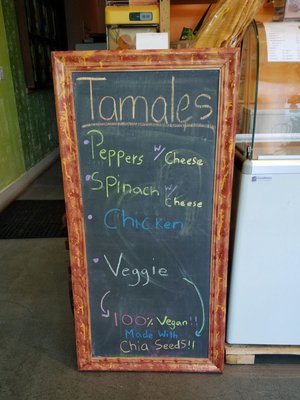 Tamales
Peppers w/ Cheese
Spinach w/ Cheese
Chicken
Veggie
100% Vegan!!
Made With
Chia Seeds!!